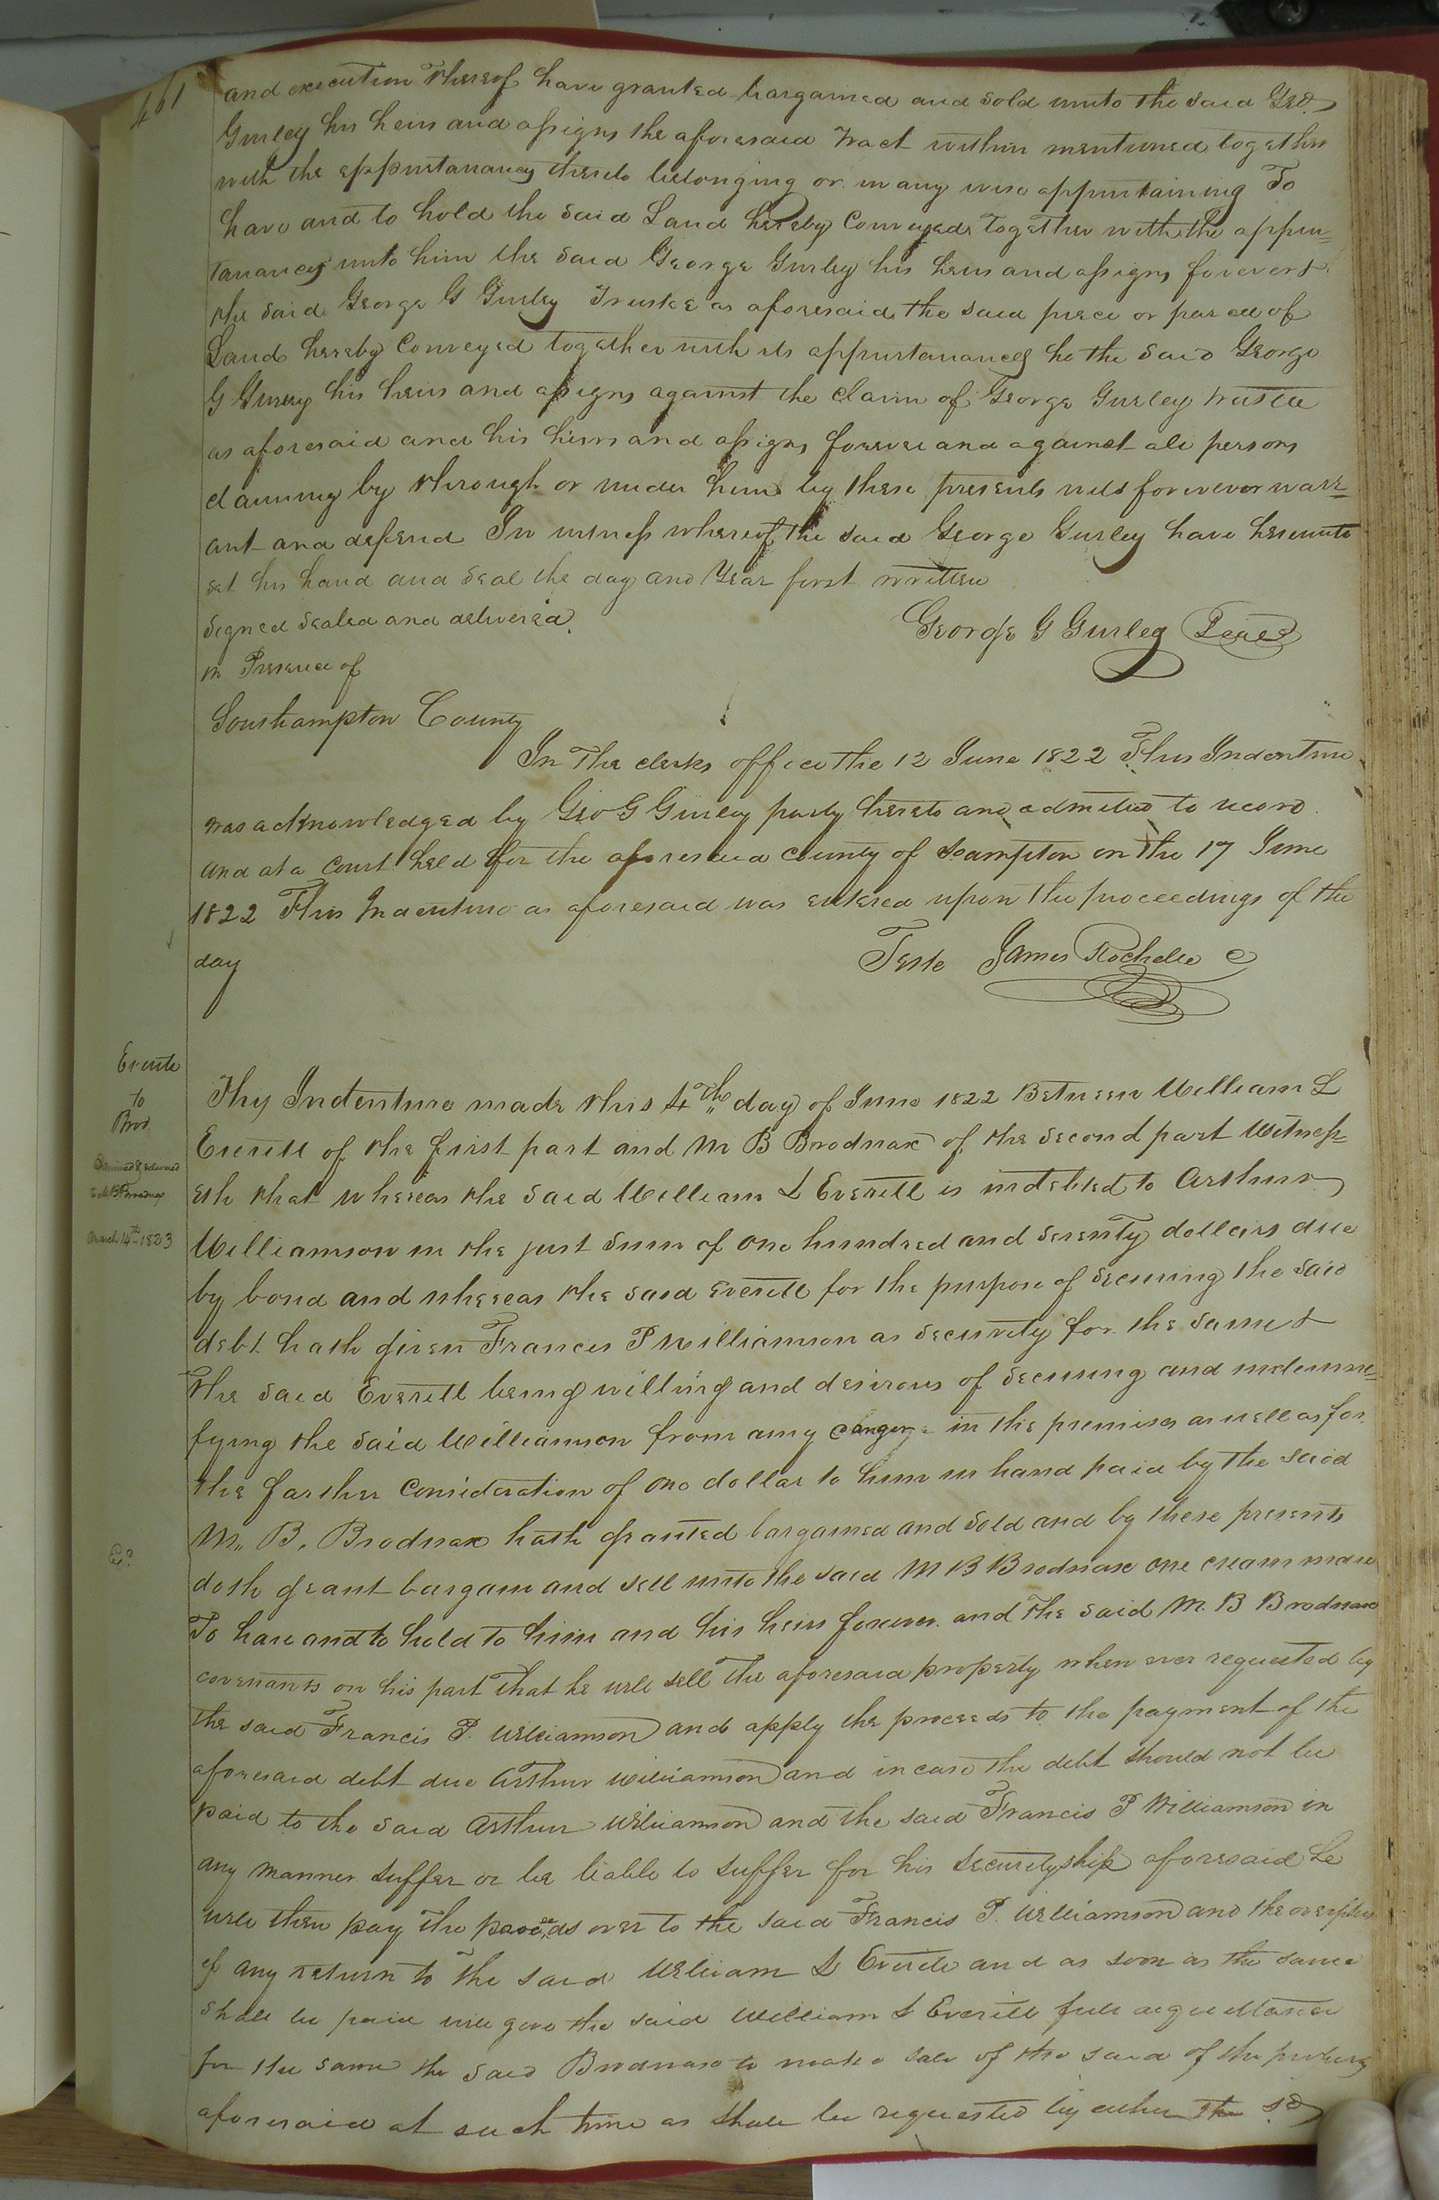 461
and execution thereof have granted bargained and sold unto the said Geo.
Gurley his heirs and assigns the aforesaid tract within mentioned together
with the appurtanances thereto belonging or in any wise appurtaining To
have and to hold the said Land hereby Conveyed together with the appur=
tanances unto him the said George Gurley his heirs and assigns forever &
the said George G Gurley Trustee as aforesaid the said piece or parcel of
Land hereby Conveyed together with its appurtanances he the said George
G Gurley his heirs and assigns against the claim of George Gurley trustee
as aforesaid and his heirs and assigns forever and against all persons
claiming by through or under him by these presents will forever warr=
ant and defend In witness whereof the said George Gurley have hereunto
set his hand and seal the day and Year first written
Signed Sealed and delivered George G Gurley Seal
in Presence of
Southampton County
In The clerks office the 12 June 1822 This Indenture
was acknowledged by Geo G Gurley party hereto and admitted to record
and at a court held for the aforesaid county of Southampton on the 17 June
1822 This Indenture as aforesaid was entered upon the proceedings of the
day Teste James Rochelle C
Everitt
to
Brod
Examined & delivered
to M B Brodnax
March 14th 1823
This Indenture made this 4th day of June 1822 Between William L
Everitt of the first part and M B Brodnax of the second part Witness=
eth that whereas the said William L Everitt is indebted to Arthur
Williamson in the just sum of one hundred and seventy dollars due
by bond and whereas the said Everitt for the purpose of securing the said
debt hath given Francis P Williamson as security for the same &
the said Everitt being willing and desirous of securing and indemni=
fying the said Williamson from any danger in the premises as well as for
the farther Consideration of one dollar to him in hand paid by the said
M. B. Brodnax hath granted bargained and sold and by these presents
doth grant bargain and sell unto the said M B Brodnax one cream mare
To have and to hold to him and his heirs forever and the said M. B Brodnax
covenants on his part that he will sell the aforesaid property when ever requested by
the said Francis P. Williamson and apply the proceeds to the payment of the
aforesaid debt due Arthur Williamson and in case the debt should not be
paid to the said Arthur Williamson and the said Francis P Williamson in
any manner suffer or be liable to suffer for his securityship aforesaid he
will then pay the proceeds over to the said Francis P. Williamson and the overplus
if any return to the said William L Everitt and as soon as the same
shall be paid will give the said William L Everitt full acquittance
for the same the said Brodnax to make sale of the said of the property
aforesaid at such time as shall be requested by either the sd